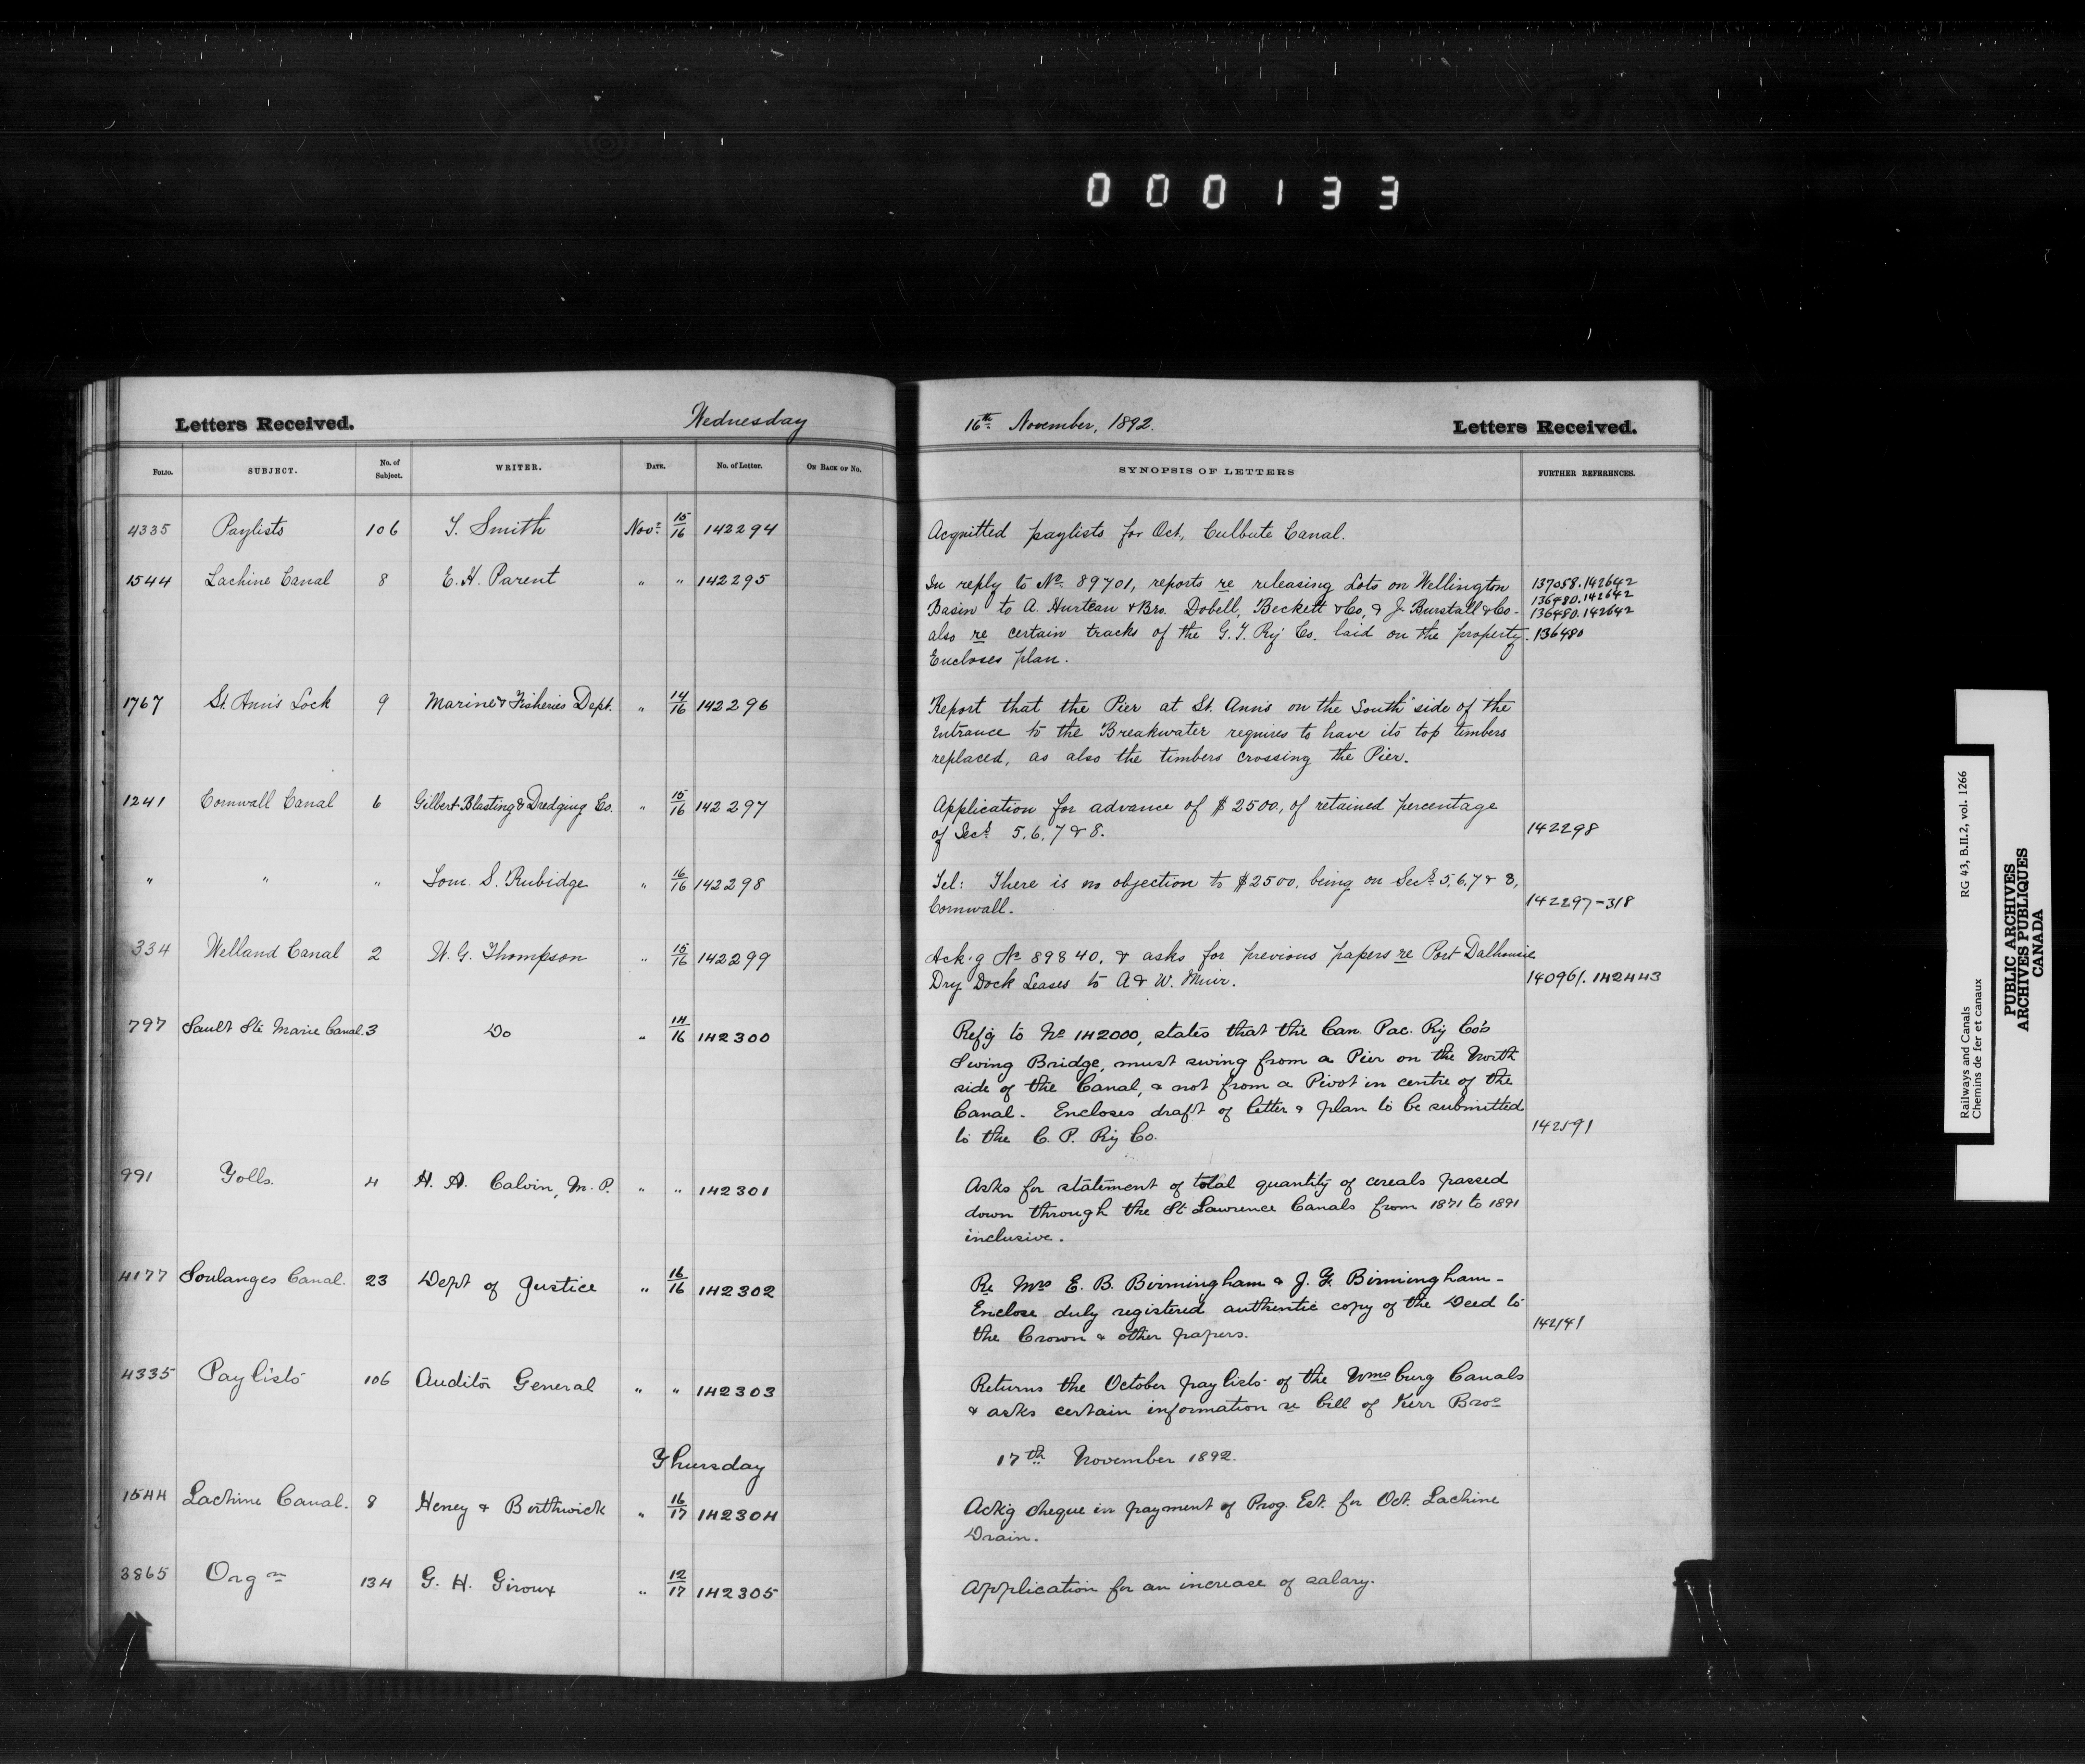 000133
Letters Received. Wednesday 16th November, 1892. Letters Received.
FOLIO. SUBJECT. No. of Subject. WRITER. DATE. No. of Letter. ON BACK OF NO. SYNOPSIS OF LETTERS FURTHER REFERENCES.
4335 Paylists 106 T. Smith Novr 15/16 142294 Acquitted paylists for Oct, Culbute Canal.
1544 Lachine Canal 8 E. H. Parent " " 142295 In reply to No 89701, reports re releasing Lots on Wellington 137058.142642
136480.142642
Basin to A. Hurteau & Bro. Dobell, Beckett & Co, & J. Burstall & Co- 136480.142642
also re certain tracks of the G. T. Ry Co. laid on the property. 136480
Encloses plan.
1767 St. Ann's Lock 9 Marine & Fisheries Dept. " 14/16 142296 Report that the Pier at St. Ann's on the South side of the
Entrance to the Breakwater requires to have its top timbers
replaced, as also the timbers crossing the Pier.
1241 Cornwall Canal 6 Gilbert Blasting & Dredging Co. " 15/16 142297 Application for advance of $2500, of retained percentage
of Secs 5, 6, 7 & 8. 142298
" " " Tom. S. Rubidge " 16/16 142298 Tel: There is no objection to $2500, being on Secs 5, 6, 7 & 8,
Cornwall. 142297-318
334 Welland Canal 2 W. G. Thompson " 15/16 142299 Ack'g No 89840, & asks for previous papers re Port Dalhousie
Dry Dock Leases to A & W. Muir. 140961. 142443
797 Sault Ste Marie Canal. 3 Do " 14/16 142300 Ref'g to No 142000, states that the Can. Pac. Ry Co's
Swing Bridge, must swing from a Pier on the North
side of the Canal, & not from a Pivot in centre of the
Canal. Encloses draft of letter & plan to be submitted
to the C. P. Ry Co. 142591
991 Tolls. 4 H. A. Calvin, M. P. " " 142301 Asks for statement of total quantity of cereals passed
down through the St Lawrence Canals from 1871 to 1891
inclusive.
4177 Soulanges Canal. 23 Dept of Justice " 16/16 142302 Re Mrs E. B. Birmingham & J. Y. Birmingham-
Enclose duly registered authentic copy of the Deed to
the Crown & other papers. 142141
4335 Paylists 106 Auditor General " " 142303 Returns the October paylists of the Wmsburg Canals
& asks certain information re bill of Kerr Bros
Thursday 17th November 1892.
1544 Lachine Canal. 8 Heney & Borthwick " 16/17 142304 Ack'g cheque in payment of Prog. Est. for Oct. Lachine
Drain.
3865 Orgn 134 G. H. Giroux " 12/17 142305 Application for an increase of salary.
Railways and Canals RG 43, B.II.2, vol. 1266
Chemins de fer et canaux
PUBLIC ARCHIVES
ARCHIVES PUBLIQUES
CANADA